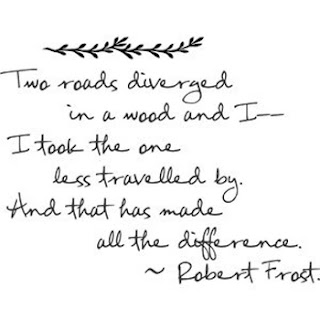 Two roads diverged
in a wood and I--
I took the one
less travelled by.
And that has made
all the difference.
~ Robert Frost.